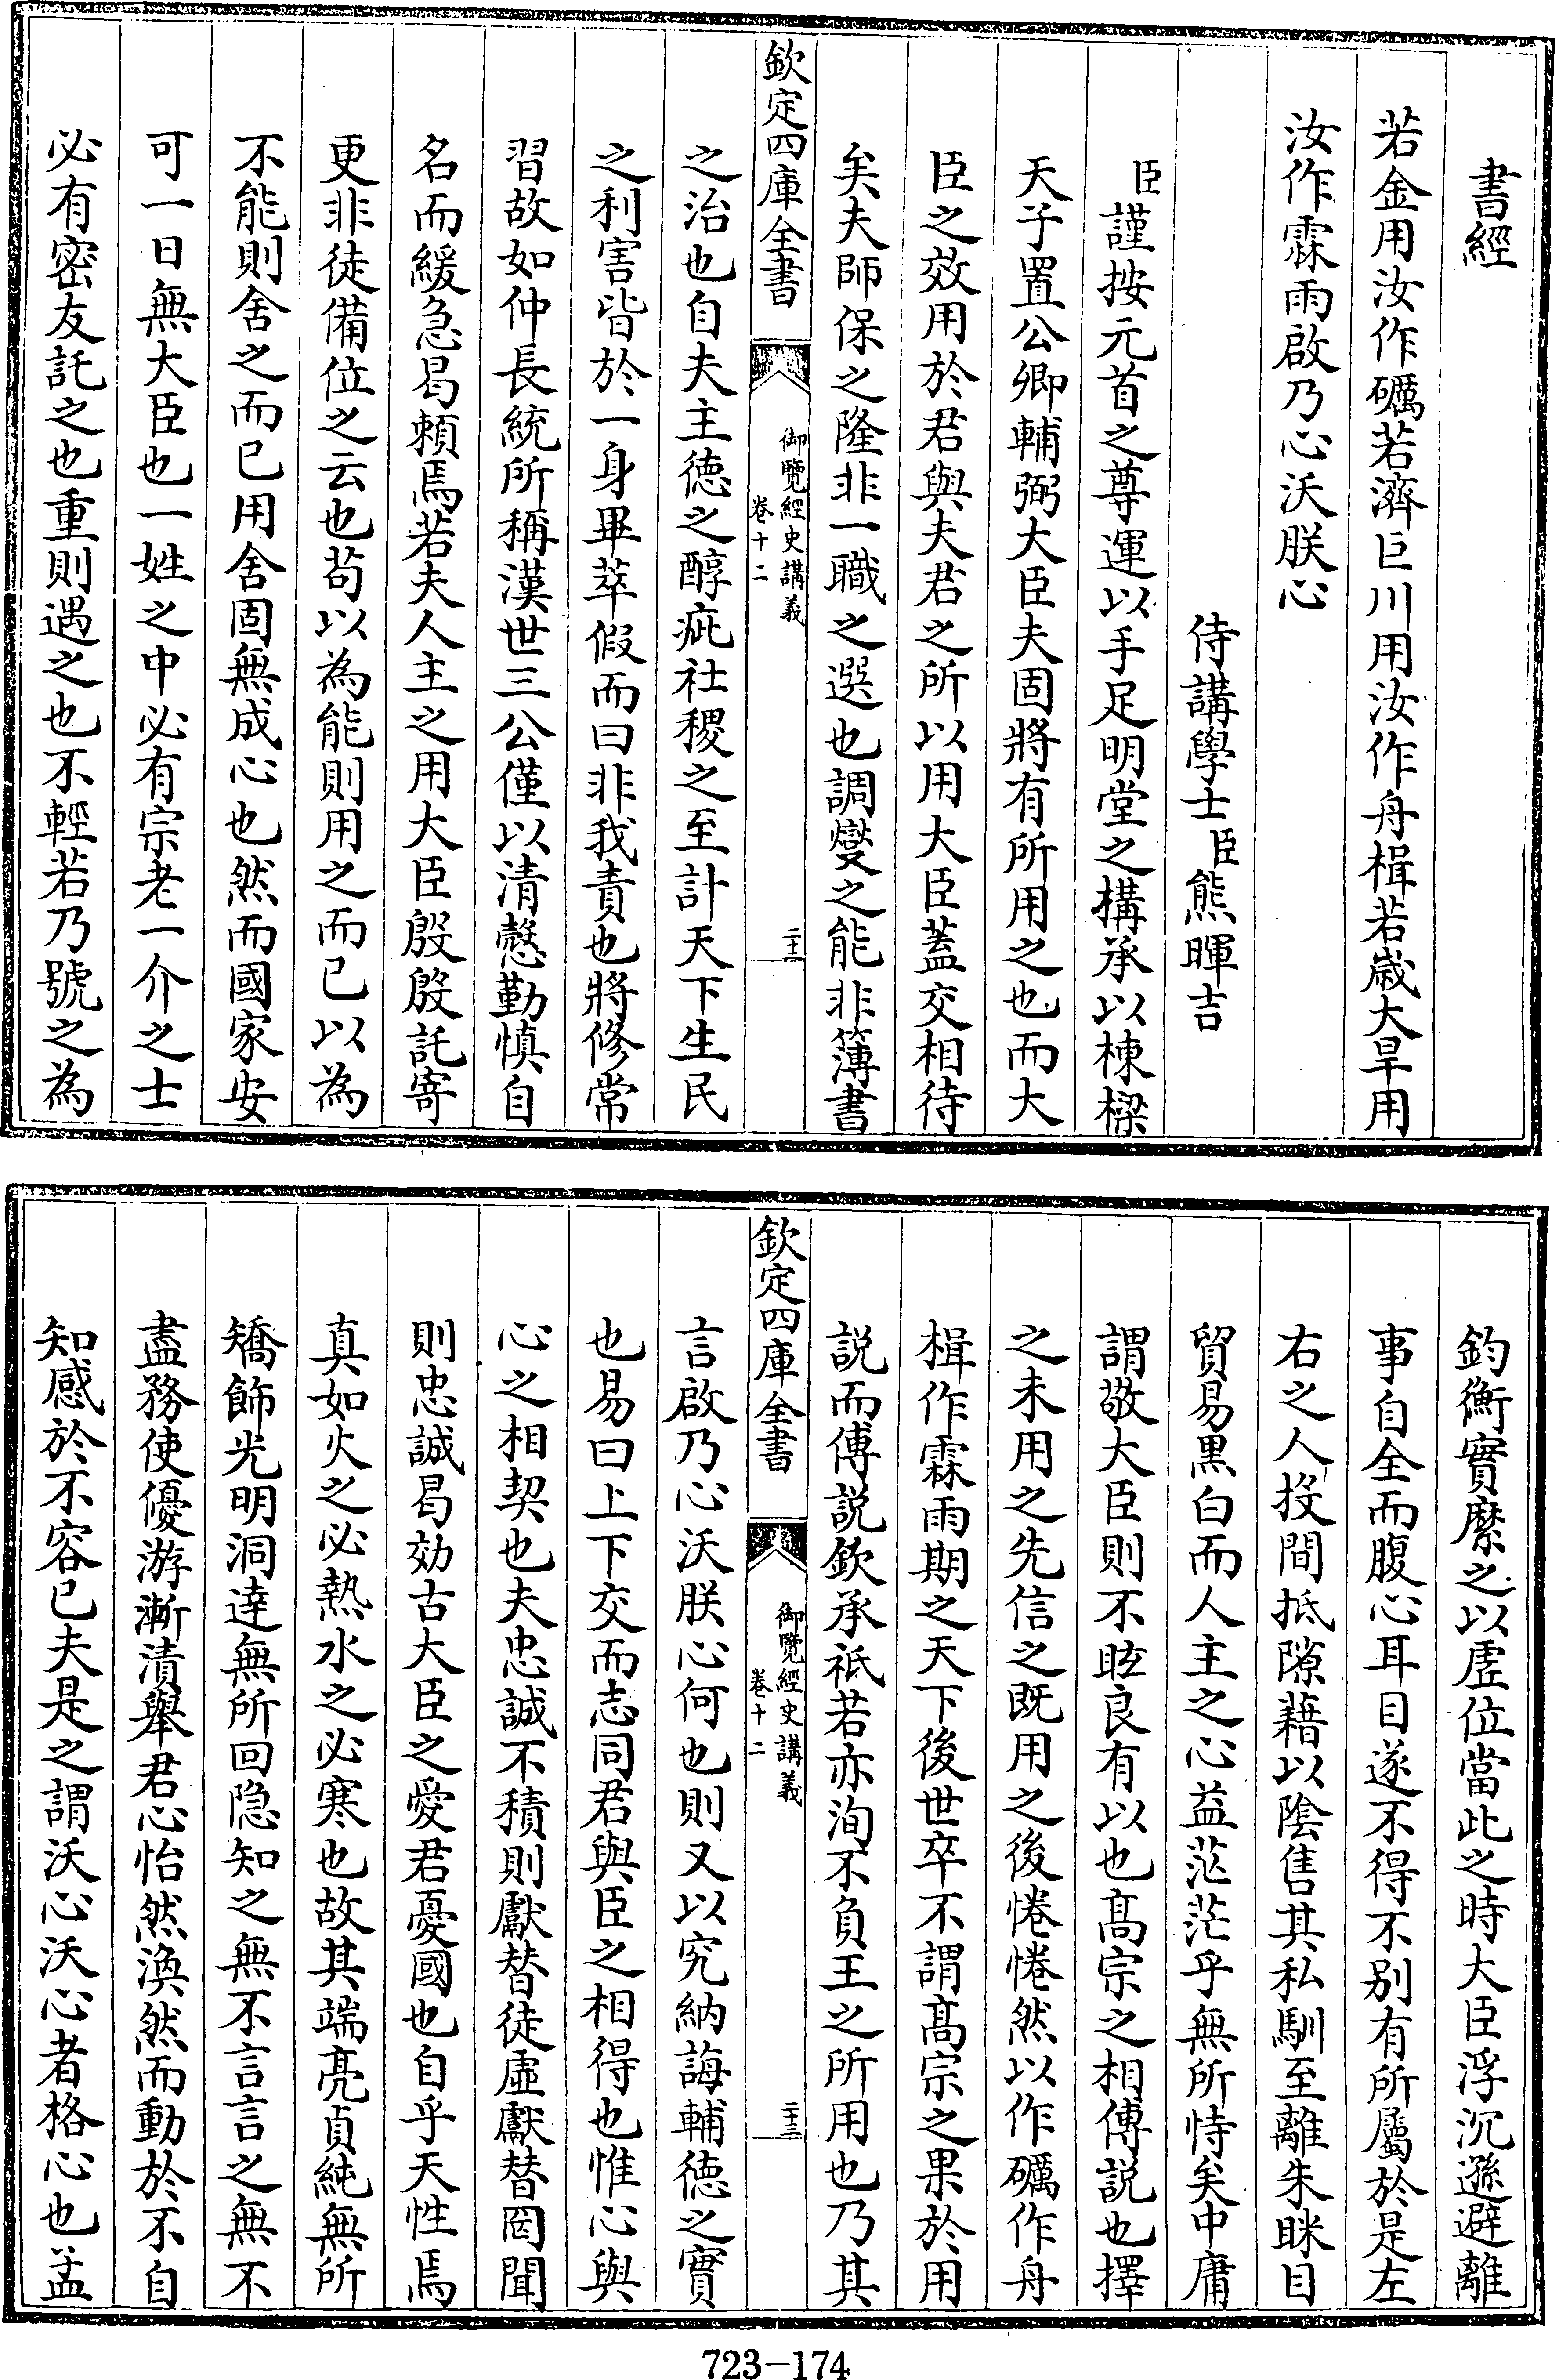 書經
若金用汝作礪若濟巨川用汝作舟楫若歳大旱用
汝作霖雨啟乃心沃朕心
侍講學士臣熊暉吉
臣謹按元首之尊運以手足明堂之構承以棟樑
天子置公卿輔弼大臣夫固將有所用之也而大
臣之效用於君與夫君之所以用大臣蓋交相待
矣夫師保之隆非一職之選也調燮之能非簿書
欽定四庫全書
御覽經史講義
卷十二
二十二
之治也自夫主德之醇疵社稷之至計天下生民
之利害皆於一身畢萃假而曰非我責也將修常
習故如仲長統所稱漢世三公僅以清慤勤慎自
名而緩急曷賴焉若夫人主之用大臣殷殷託寄
更非徒備位之云也茍以為能則用之而已以為
不能則舍之而已用舍固無成心也然而國家安
可一日無大臣也一姓之中必有宗老一介之士
必有密友託之也重則遇之也不輕若乃號之為
鈞衡實縻之以虛位當此之時大臣浮沉遜避離
事自全而腹心耳目遂不得不别有所屬於是左
右之人投間抵隙藉以陰售其私馴至離朱眯目
貿易黑白而人主之心益茫茫乎無所恃矣中庸
謂敬大臣則不眩良有以也髙宗之相傅説也擇
之未用之先信之既用之後惓惓然以作礪作舟
楫作霖雨期之天下後世卒不謂髙宗之果於用
説而傅説欽承祗若亦洵不負王之所用也乃其
欽定四庫全書
御覽經史講義
卷十二
二十三
言啟乃心沃朕心何也則又以究納誨輔德之實
也易曰上下交而志同君與臣之相得也惟心與
心之相契也夫忠誠不積則獻替徒虛獻替罔聞
則忠誠曷効古大臣之愛君憂國也自乎天性焉
真如火之必熱水之必寒也故其端亮貞純無所
矯飾光明洞達無所回隐知之無不言言之無不
盡務使優游漸漬舉君心怡然渙然而動於不自
知感於不容已夫是之謂沃心沃心者格心也孟
723-174